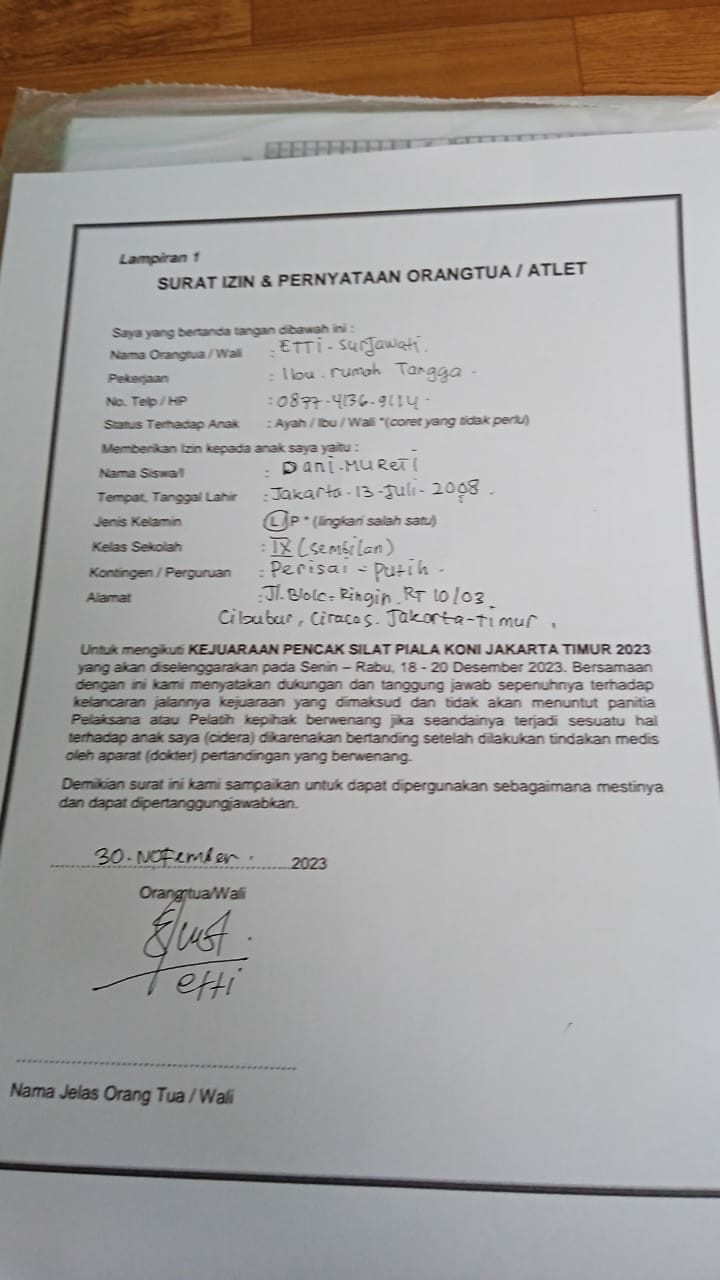 Lampiran 1
SURAT IZIN & PERNYATAAN ORANGTUA / ATLET
Saya yang bertanda tangan dibawah ini :
Nama Orangtua / Wali : ETTI - Surjawati.
Pekerjaan : Ibu. rumah Tangga -
No. Telp / HP : 0877-4136-9114 -
Status Terhadap Anak : Ayah / Ibu / Wali *(coret yang tidak perlu)
Memberikan Izin kepada anak saya yaitu :
Nama Siswa/I : Dani-MUReTI
Tempat, Tanggal Lahir : Jakarta-13-Juli-2008.
Jenis Kelamin L/P * (lingkari salah satu)
Kelas Sekolah : IX (Sembilan)
Kontingen / Perguruan : Perisai - Putih -
Alamat : Jl. Ringin. RT 10/03.
Cibubur, Ciracas. Jakarta-Timur,
Untuk mengikuti KEJUARAAN PENCAK SILAT PIALA KONI JAKARTA TIMUR 2023
yang akan diselenggarakan pada Senin – Rabu, 18 - 20 Desember 2023. Bersamaan
dengan ini kami menyatakan dukungan dan tanggung jawab sepenuhnya terhadap
kelancaran jalannya kejuaraan yang dimaksud dan tidak akan menuntut panitia
Pelaksana atau Pelatih kepihak berwenang jika seandainya terjadi sesuatu hal
terhadap anak saya (cidera) dikarenakan bertanding setelah dilakukan tindakan medis
oleh aparat (dokter) pertandingan yang berwenang.
Demikian surat ini kami sampaikan untuk dapat dipergunakan sebagaimana mestinya
dan dapat dipertanggungjawabkan.
30-NOFember. 2023
Orangtua/Wali
etti
Nama Jelas Orang Tua / Wali